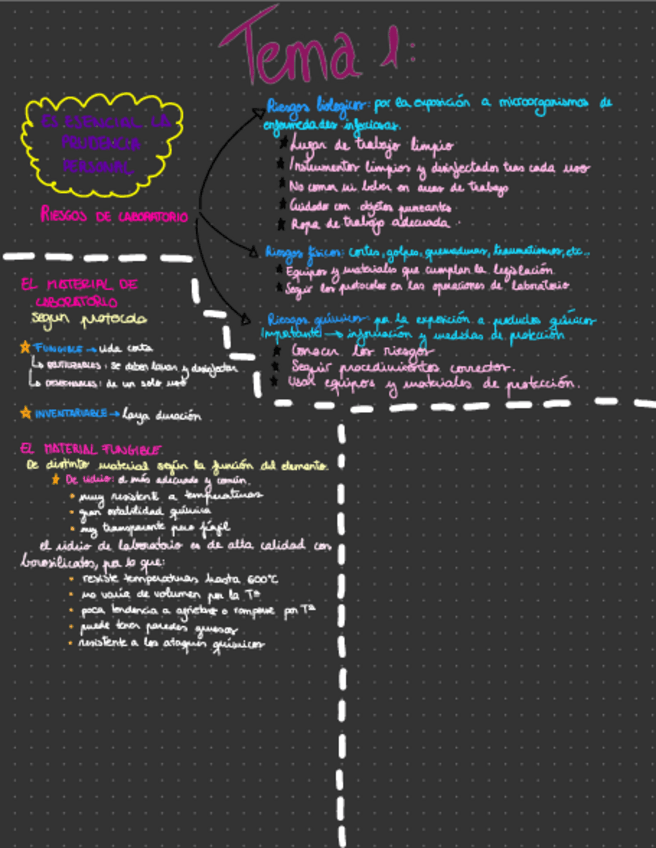 Tema 1:
ES ESENCIAL LA
PRUDENCIA
PERSONAL
RIESGOS DE LABORATORIO
Riesgos biológicos: por la exposición a microorganismos de
enfermedades infecciosas.
Lugar de trabajo limpio
Instrumentos limpios y desinfectados tras cada uso
No comer ni beber en áreas de trabajo
Cuidado con objetos punzantes
Ropa de trabajo adecuada.
Riesgos físicos: cortes, golpes, quemaduras, traumatismos, etc...
Equipos y materiales que cumplan la legislación
Seguir los protocolos en las operaciones de laboratorio.
Riesgos químicos: por la exposición a productos químicos
Importante → información y medidas de protección
Conocer los riesgos
Seguir procedimientos correctos.
Usar equipos y materiales de protección.
EL MATERIAL DE
LABORATORIO
según protocolo
FUNGIBLE → vida corta
REUTILIZABLES: se deben lavar y desinfectar
DESECHABLES: de un solo uso
INVENTARIABLE → larga duración
EL MATERIAL FUNGIBLE
De distinto material según la función del elemento.
De vidrio: el más adecuado y común.
• muy resistente a temperaturas
• gran estabilidad química
• muy transparente pero frágil
el vidrio de laboratorio es de alta calidad con
borosilicatos, por lo que:
• resiste temperaturas hasta 600ºC
• no varía de volumen por la Tª
• poca tendencia a agrietarse o romperse por Tª
• puede tener paredes gruesas
• resistente a los ataques químicos